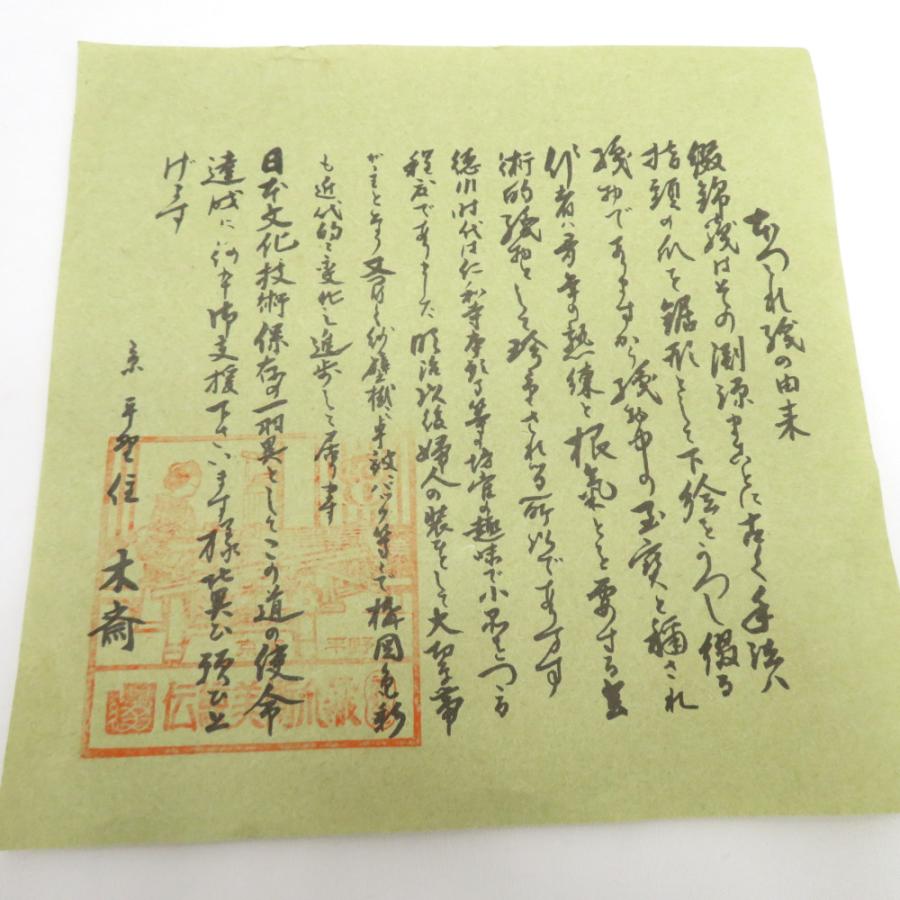 つづれ織の由来
綴錦織はその淵源まことに古く手法ハ
指頭の爪を鋸形として下絵をうつし綴る
織物でありますから織物中の至宝と称され
作者ハ多年の熟練と根氣とを要する芸
術的織物として珍重される所以であります
徳川時代は仁和寺本願寺等の坊官の趣味で小品をつくる
程度でありました 明治以後婦人の装ひとして大切な帯
がまとなり 又 壁掛 バック等として 図色彩
も近代的に変化と進歩して居ります
日本文化技術保存の一翼としてこの道の使命
達成に何卒御支援下さいます様 頭ひ上
げます
京 平野住 木斎
平野
伝